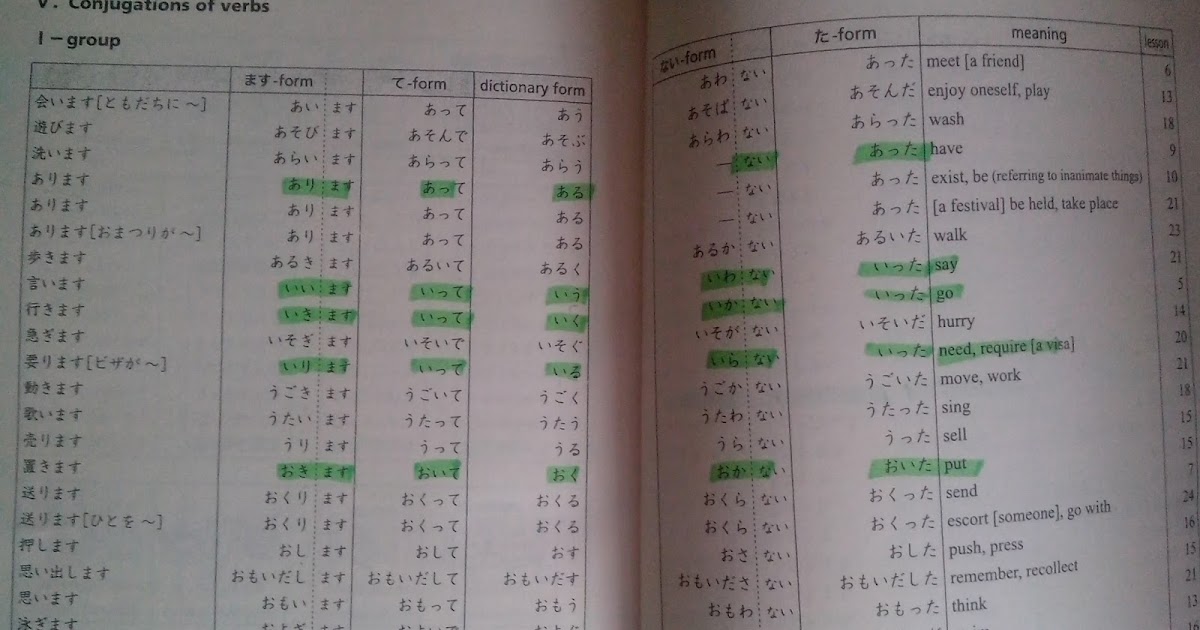 V. Conjugations of verbs
I－group
ます-form て-form dictionary form
会います[ともだちに～] あい ます あって あう
遊びます あそび ます あそんで あそぶ
洗います あらい ます あらって あらう
あります あり ます あって ある
あります あり ます あって ある
あります[おまつりが～] あり ます あって ある
歩きます あるき ます あるいて あるく
言います いい ます いって いう
行きます いき ます いって いく
急ぎます いそぎ ます いそいで いそぐ
要ります[ビザが～] いり ます いって いる
動きます うごき ます うごいて うごく
歌います うたい ます うたって うたう
売ります うり ます うって うる
置きます おき ます おいて おく
送ります おくり ます おくって おくる
送ります[ひとを～] おくり ます おくって おくる
押します おし ます おして おす
思い出します おもいだし ます おもいだして おもいだす
思います おもい ます おもって おもう
泳ぎます およぎ ます およいで およぐ
ない-form た-form meaning lesson
あわ ない あった meet [a friend] 6
あそば ない あそんだ enjoy oneself, play 13
あらわ ない あらった wash 18
― ない あった have 9
― ない あった exist, be (referring to inanimate things) 10
― ない あった [a festival] be held, take place 21
あるか ない あるいた walk 23
いわ ない いった say 21
いか ない いった go 5
いそが ない いそいだ hurry 14
いら ない いった need, require [a visa] 20
うごか ない うごいた move, work 21
うたわ ない うたった sing 18
うら ない うった sell 15
おか ない おいた put 15
おくら ない おくった send 7
おくら ない おくった escort [someone], go with 24
おさ ない おした push, press 16
おもいださ ない おもいだした remember, recollect 15
おもわ ない おもった think 21
13